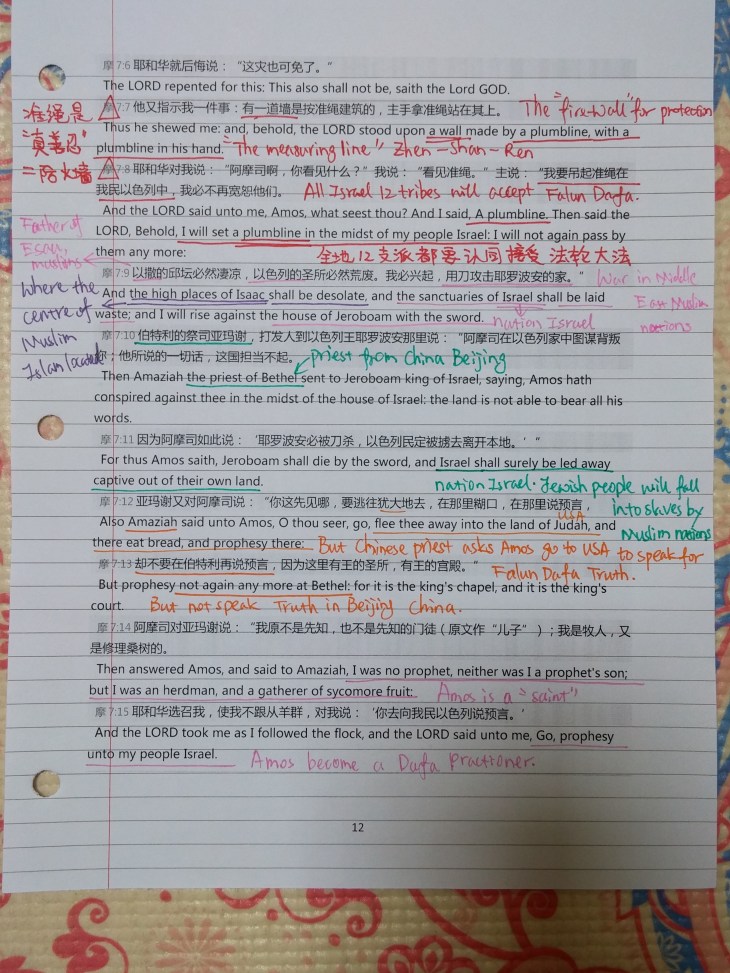 摩 7:6 耶和华就后悔说：“这灾也可免了。”
The LORD repented for this: This also shall not be, saith the Lord GOD.
准绳是
摩 7:7 他又指示我一件事：有一道墙是按准绳建筑的，主手拿准绳站在其上。
The "fire-wall" for protection
"真善忍"
Thus he shewed me: and, behold, the LORD stood upon a wall made by a plumbline, with a
plumbline in his hand.
"The measuring line" Zhen-Shan-Ren
火墙
摩 7:8 耶和华对我说：“阿摩司啊，你看见什么？”我说：“看见准绳。”主说：“我要吊起准绳在
我民以色列中，我必不再宽恕他们。
All Israel 12 tribes will accept Falun Dafa.
And the LORD said unto me, Amos, what seest thou? And I said, A plumbline. Then said the
LORD, Behold, I will set a plumbline in the midst of my people Israel: I will not again pass by
them any more:
全地12支派都要认同接受法轮大法
Father of
Esau,
muslims
摩 7:9 以撒的邱坛必然凄凉，以色列的圣所必然荒废。我必兴起，用刀攻击耶罗波安的家。”
War in Middle
East Muslim
nations
Where the
centre of
Muslim
Islam located
And the high places of Isaac shall be desolate, and the sanctuaries of Israel shall be laid
waste; and I will rise against the house of Jeroboam with the sword.
nation Israel
摩 7:10 伯特利的祭司亚玛谢，打发人到以色列王耶罗波安那里说：“阿摩司在以色列家中图谋背叛
你；他所说的一切话，这国担当不起。
priest from China Beijing
Then Amaziah the priest of Bethel sent to Jeroboam king of Israel, saying, Amos hath
conspired against thee in the midst of the house of Israel: the land is not able to bear all his
words.
摩 7:11 因为阿摩司如此说：‘耶罗波安必被刀杀，以色列民定被掳去离开本地。’“
For thus Amos saith, Jeroboam shall die by the sword, and Israel shall surely be led away
captive out of their own land.
nation Israel. Jewish people will fall
into slaves by
Muslim nations
摩 7:12 亚玛谢又对阿摩司说：“你这先见哪，要逃往犹大地去，在那里糊口，在那里说预言，
USA
Also Amaziah said unto Amos, O thou seer, go, flee thee away into the land of Judah, and
there eat bread, and prophesy there:
But Chinese priest asks Amos go to USA to speak for
Falun Dafa Truth.
摩 7:13 却不要在伯特利再说预言，因为这里有王的圣所，有王的宫殿。”
But prophesy not again any more at Bethel: for it is the king's chapel, and it is the king's
court.
But not speak Truth in Beijing China.
摩 7:14 阿摩司对亚玛谢说：“我原不是先知，也不是先知的门徒（原文作“儿子”）；我是牧人，又
是修理桑树的。
Then answered Amos, and said to Amaziah, I was no prophet, neither was I a prophet's son;
but I was an herdman, and a gatherer of sycomore fruit:
Amos is a "saint"
摩 7:15 耶和华选召我，使我不跟从羊群，对我说：‘你去向我民以色列说预言。‘
And the LORD took me as I followed the flock, and the LORD said unto me, Go, prophesy
unto my people Israel.
Amos become a Dafa Practioner.
12